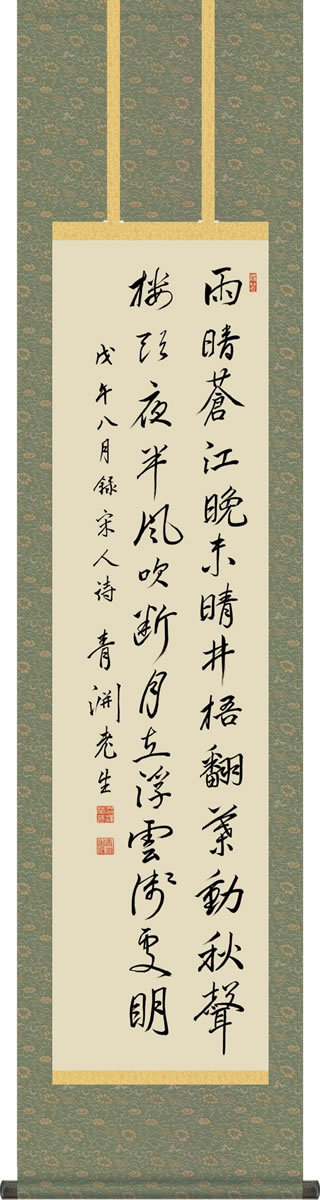 雨暗蒼江晩未晴井梧翻葉動秋聲
樓頭夜半風吹断月在浮雲浅處明
戊午八月録宋人詩 青淵老生